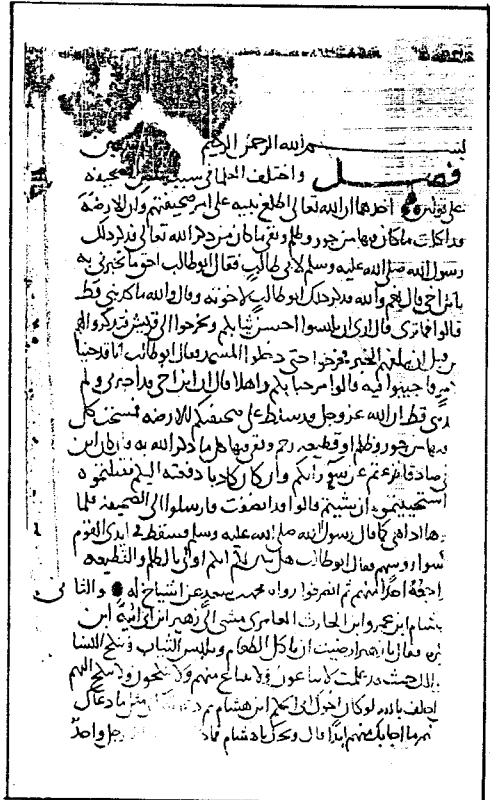 بسم الله الرحمن الرحيم
فصل واختلف العلما في سبب نقض الصحيفه
على قولين احدهما ان الله تعالى اطلع نبيه على امر صحيفتهم وان الارضة
قد اكلت ما كان فيها من جور وظلم وبقي ما كان من ذكر الله تعالى فذكر ذلك
رسول الله صلى الله عليه وسلم لابي طالب فقال ابو طالب احق ما تخبرني به
يا بن اخي قال نعم والله فذكر ذلك ابو طالب لاخوته وقال والله ما كذبني قط
قالوا فما ترى قال ارى ان تلبسوا احسن ثيابكم وتخرجوا الى قريش فتذكروا لهم
من قبل ان يبلغهم الخبر فخرجوا حتى دخلوا المسجد فقال ابو طالب انا قد جينا
فاجيبوا فيه قالوا مرحبا بكم واهلا قال ان ابن اخي قد اخبرني ولم
قط ان الله عز وجل قد سلط على صحيفتكم الارضة فمسحت كل
فيها من جور وظلم او قطيعه رحم وبقي فيها كل ما ذكر الله به فان كان ابن
اخي صادقا نزعتم عن سو رأيكم وان كان كاذبا دفعته اليكم فقتلتموه
او استحييتموه ان شيتم قالوا قد انصفت فارسلوا الى الصحيفة فلما
هي كما قال رسول الله صلى الله عليه وسلم فسقط في ايدي القوم
روسهم فقال ابو طالب هل تبين لكم انكم اولى بالظلم والقطيعه
احد منهم ثم انصرفوا رواه محمد بن سعد عن اشياخ له والثاني
هشام ابن عمرو ابن الحارث العامري مشى الى زهير ابن ابي امية ابن
فقال يا زهير ارضيت ان تاكل الطعام وتلبس الثياب وتنكح النسا
حيث قد علمت لا يباعون ولا يبتاع منهم ولا ينكحون ولا ينكح اليهم
احلف بالله لو كان اخوال ابي الحكم ابن هشام ثم دعوته الى مثل ما دعاك
ما اجابك منهم ابدا قال ويحك يا هشام فماذا رجل واحد